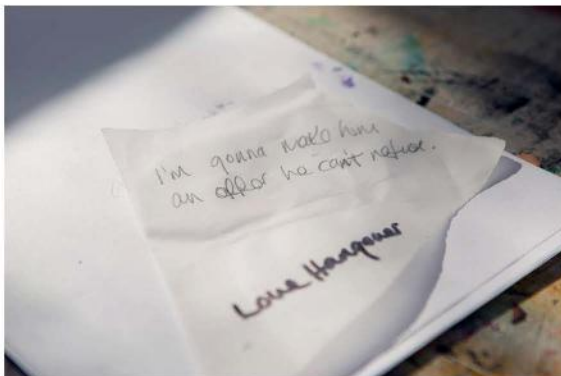 I'm gonna make him
an offer he can't refuse.
Love Hangover